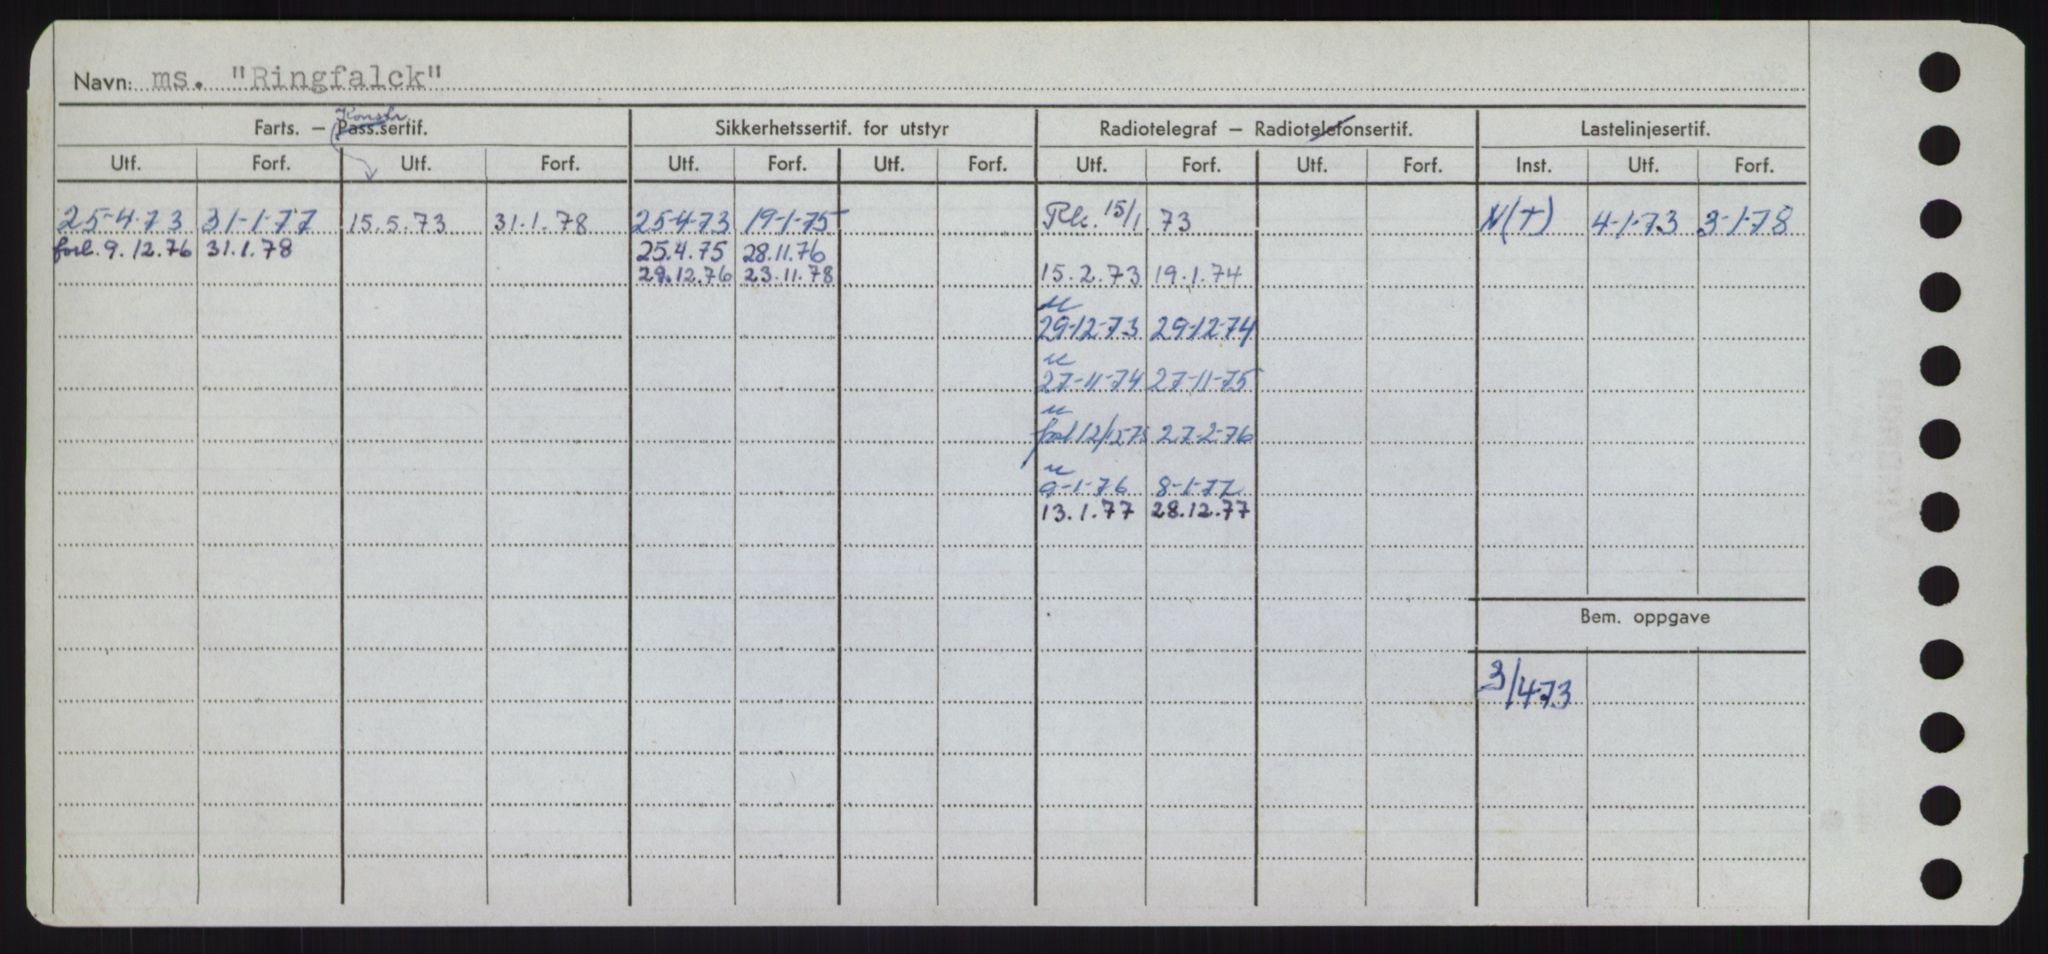 Navn: ms. "Ringfalck"
Konstr
Farts. — Pass.sertif. Sikkerhetssertif. for utstyr Radiotelegraf — Radiotelefonsertif. Lastelinjesertif.
Utf. Forf. Utf. Forf. Utf. Forf. Utf. Forf. Utf. Forf. Utf. Forf. Inst. Utf. Forf.
25-4-73 31-1-77 15.5.73 31.1.78 25-4-73 19-1-75 15/1 73 N(T) 4-1-73 3-1-78
forl. 9.12.76 31.1.78 25.4.75 28.11.76
29.12.76 23.11.78 15.2.73 19.1.74
u
29-12-73 29-12-74
u
27-11-74 27-11-75
u
forl 12/12 75 27-2-76
u
9-1-76 8-1-77
13.1.77 28.12.77
Bem. oppgave
3/4-73